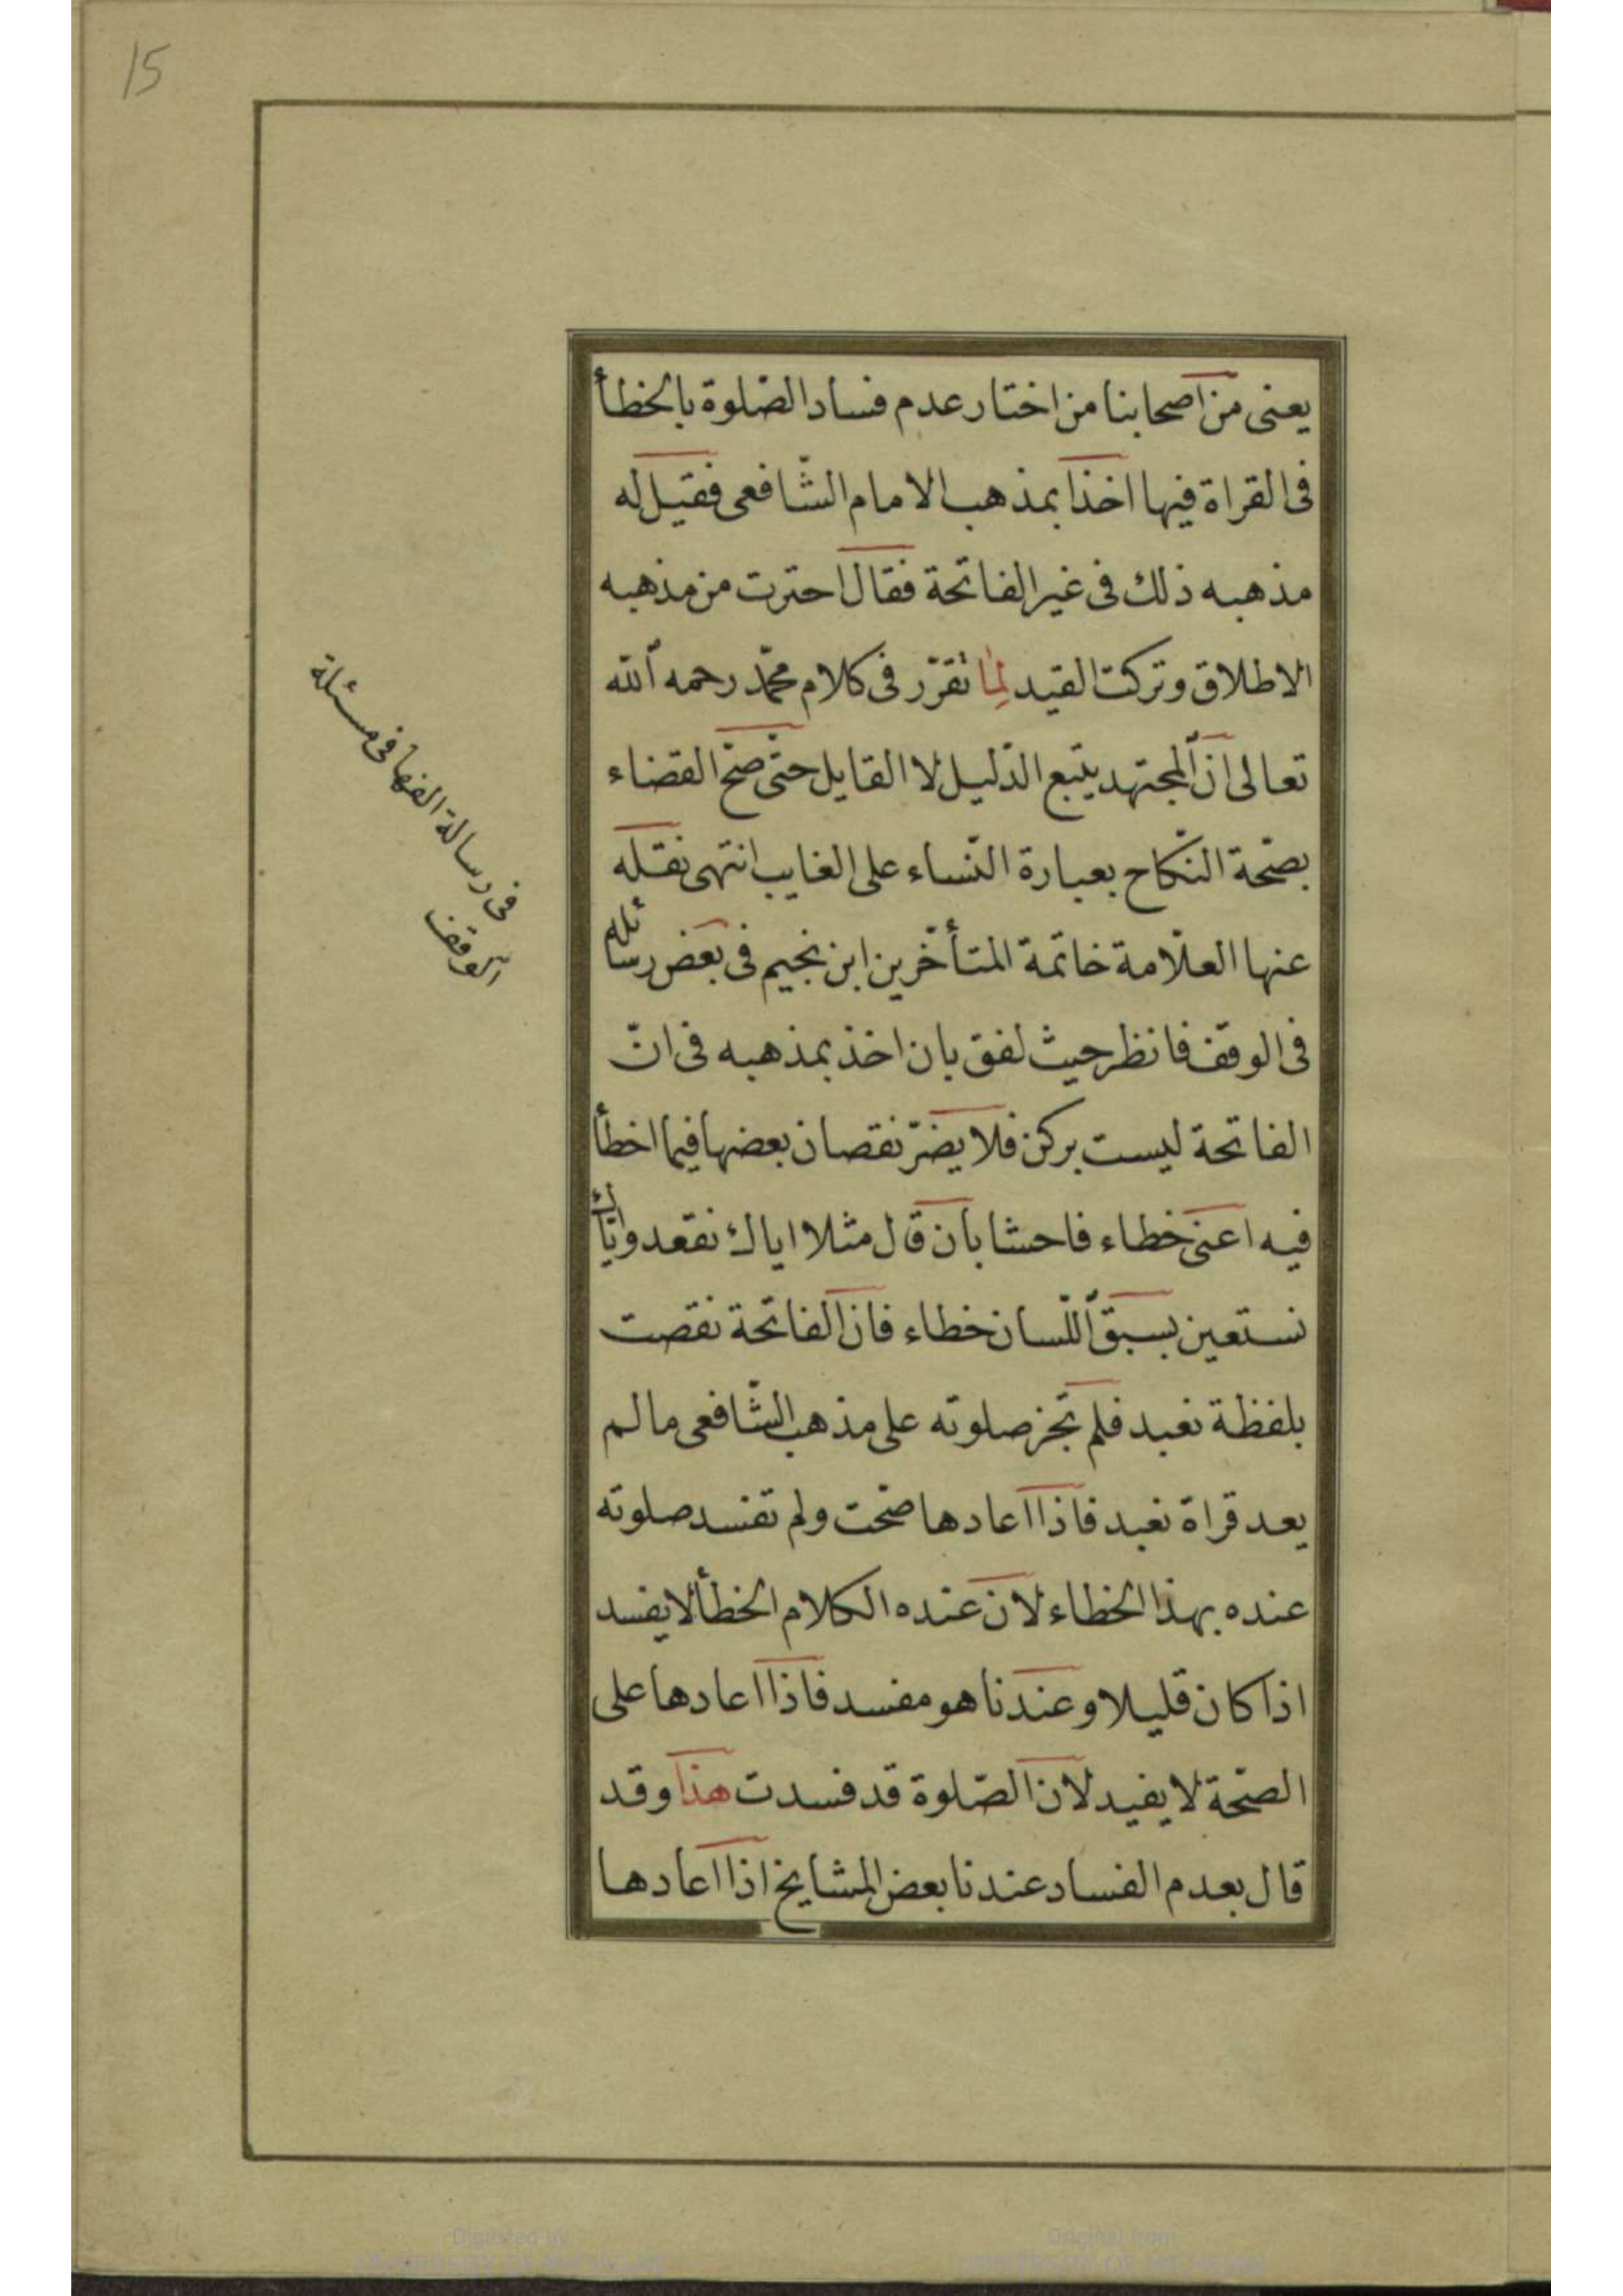 15
يعنى من اصحابنا من اختار عدم فساد الصّلوة بالخطأ
فى القراة فيها اخذا بمذهب الامام الشّافعى فقيل له
مذهبه ذلك فى غير الفاتحة فقال احترت من مذهبه
الاطلاق وتركت القيد لِمٰا تقرّر فى كلام محمّد رحمه الله
تعالى انّ المجتهد يتّبع الدّليل لا القايل حتّى صحّ القضاء
بصّحة النكّاح بعبارة النّساء على الغايب انتهى نقله
عنها العلّامة خاتمة المتأخّرين ابن نجيم فى بعض رسائله
فى الوقف فانظر حيث لفق بان اخذ بمذهبه فى انّ
الفاتحة ليست بركن فلا يضرّ نقصان بعضها فيما اخطأ
فيه اعنى خطاء فاحشا بأن قال مثلا اياك نقعد وايّاك
نستعين بسبق اللّسان خطاء فان الفاتحة نقصت
بلفظة نعبد فلم تجز صلوته على مذهب الشّافعى ما لم
يعد قراة نعبد فاذا اعادها صحّت ولم تفسد صلوته
عنده بهذا الخطاء لان عنده الكلام الخطأ لا يفسد
اذا كان قليلا وعندنا هو مفسد فاذا اعادها على
الصّحة لا يفيد لان الصّلوة قد فسدت هذا وقد
قال بعدم الفساد عندنا بعض المشايخ اذا اعادها
فى رسالة الفها فى مسئلة
الوقف